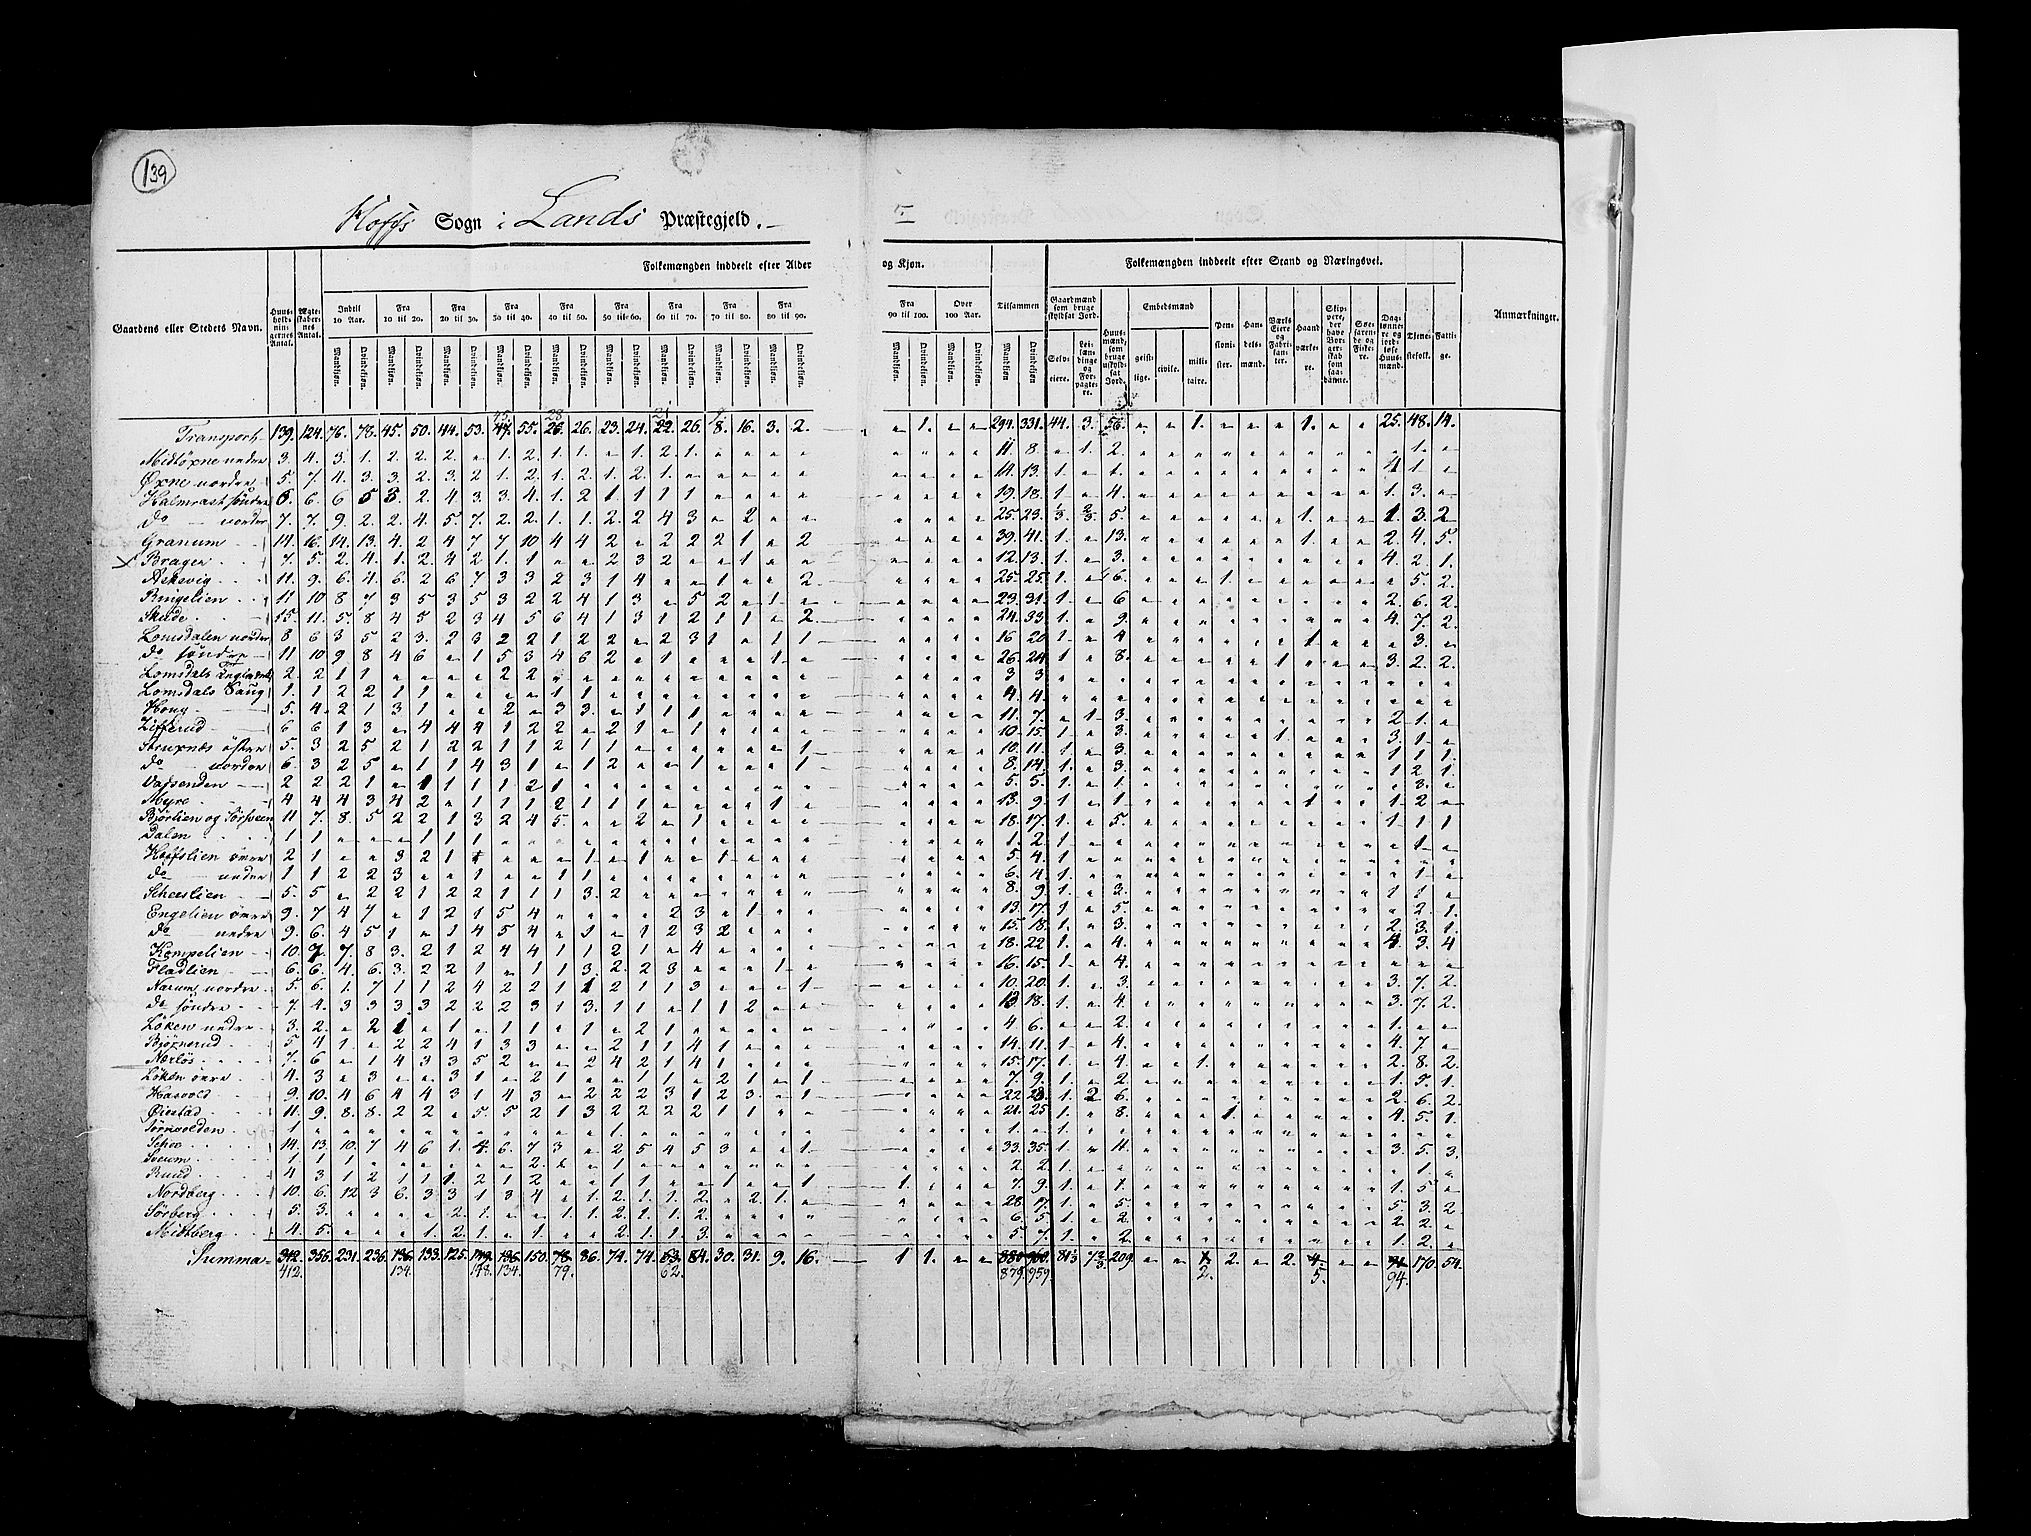 139
Hoffs Sogn i Lands Præstegjeld.
Folkemængden inddeelt efter Alder og Kjøn. Folkemængden inddeelt efter Stand og Næringsvei.
Gaardens eller Stedets Navn. Huus-holdnin-gernes Antal. Ægte-skaber-nes Antal. Indtil 10 Aar. Fra 10 til 20. Fra 20 til 30. Fra 30 til 40. Fra 40 til 50. Fra 50 til 60. Fra 60 til 70. Fra 70 til 80. Fra 80 til 90. Fra 90 til 100. Over 100 Aar. Tilsammen Anmærkninger.
Mandkjøn. Qvindekjøn.
Gaardmænd som bruge skyldsat Jord. Selv-eiere. Lei-lændinge og For-pagtere. Huus-mænd, som bruge uskyld-sat Jord. Embedsmænd geist-lige. civile. mili-taire. Pen-sioni-ster. Han-dels-mænd. Værks Eiere og Fabri-kan-ter. Haand-værke-re. Skip-pere, der have Bor-ger-skab som saa-danne. Søe-farende og Fiske-re. Dag-lønne-re og jord-løse Huus-mænd. Tjene-stefolk. Fatti-ge.
Transport 139. 124. 76. 78. 45. 50. 44. 53. 45. 55. 28. 26. 23. 24. 21. 26. 8. 16. 3. 2. 1. 294. 331. 44. 3. 56. 1. 1. 25. 48. 14.
Midtöxne nedre 3. 4. 3. 1. 2. 2. 2. 1. 2. 1. 1. 1. 2. 1. 11. 8. 1. 2. 1.
Öxne nordre 5. 7. 4. 3. 3. 2. 3. 2. 1. 2. 1. 2. 1. 2. 1. 14. 13. 1. 1. 4 1.
Halmrast söndre 6. 6. 6 5 3. 2 4 3. 3. 4. 1. 2 1. 1 1 1 1. 19. 18. 1. 4. 1. 3.
do nordre 7. 7. 9. 2. 2. 4. 5. 7. 2. 2. 1. 1. 2. 2 4 3 2 25. 23. 1/3. 2/3. 5. 1. 1. 3. 2
Granum 14. 16. 14. 13. 4. 2 4 7 7 10 4 4 2 2 2 2 1 2 39. 41. 1. 13. 1. 2. 4. 5.
Brager 7. 5. 2. 4. 1. 2 4 2 1. 1 2 3 2 1 12. 13. 1. 3. 4. 2 1.
Askevig 11. 9. 6. 4. 6. 2 6 7 3 3 2 3 1 4 1 2. 25. 25. 1. 6. 1. 5. 2.
Ringelien 11 10 8 7 3 5 3 5 3 2 2 4 1 3 5 2 1. 23. 31. 1. 6 2. 6. 2.
Skude 15. 11. 5. 8 4 5 2 3 4 5 6 4 1 3 1 2 1 1 2. 24. 33. 1. 9. 4. 7. 2
Lomsdalen nordre 8 6 3 5 2 3. 2 3 2 2 1 2 2 2 3 1 1 1 16 20 1. 4 1 3.
do söndre 11 10 9 8 4 6 1 5 3 4 6 2 1 1. 26. 24 1. 8. 1 3. 2. 2.
Lomsdals 2. 2 1 1 2 2 3 3
Lomsdals Saug 1. 1 2 2 1 1 1 1 4. 4.
Houg 5. 4. 2 1 3 1 2 3 3. 1 1 11. 7. 1. 3. 2 1.
Zifferud 6 6 1 3 4 4 4 1 2 2 2 1 1 10. 15. 1. 3. 1. 3. 1
Struxnæs östre 5. 3 2 5 2 1 2 2 1 1 2 1 1 1. 10. 11. 1. 3. 1 1 1.
do nordre 6. 3 2 5 1 1 4 3 1 1 2 1 1. 8. 14. 1. 3. 1 2. 1.
Vassenden 2 2 2 1 1 1 1 1 2 1 5 5. 1. 1. 3.
Myre 4 4 4 3 4 2 1 1 1 2 1 1 1 1 13. 9. 1 1 1 1. 2
Björlien og 11 7. 8. 5 2 2 1 3 2 4 5. 2 1 18. 17. 1. 5. 1 1 1
Dalen 1 1 1 1 1 1. 2. 1. 1.
Hoffslien övre 2 1 3 2 1 1 1 1 1 5. 4. 1. 1.
do nedre 1 1 2 2 3 1 1 1 6. 4. 1. 1.
Scheeslien 5. 5 2 2 1 2 2 1 1 1 3. 2 8. 9. 1. 3. 1 1
Engelien övre 9. 7 4 7 1 2 1 5 4 2 3 1 13. 17. 1 5. 2. 1.
do nedre 9. 6. 4 5 1 1 4 5 4 1 1 2 3 2 15. 18. 1. 3. 2. 3. 1.
Kompelien 10. 7. 7. 8 3. 2 1 2 4 4 1 1 2 1 4 18. 22 1. 4. 4. 3. 4
Fladlien 6. 6. 4. 6. 3. 2 2 1 1 1 3. 2. 2 3 1 16. 15. 1. 4.
Narum nordre 5. 6. 1. 7 1 1 2 4 2 2 1 1 2 1 1 3 1. 10. 20. 1. 3. 3. 7. 2.
do söndre 7. 4. 3 3 3 3 2 2 2 3 1 3. 1 1 1 1 2 13. 18. 1. 4. 3. 7. 2.
Löken nedre 3. 2. 2 1. 1 1 1 1 1 2 1 4 6. 2. 1.
Bjöxnerud 5 4 1. 2 2 4 1 3 3 2 1 1 4 1 14. 11. 1. 4. 4. 7.
Nærlös 7. 6 1 4 3 3 5 2 2 4 2 1 4 1 15. 17. 1. 4 1. 2. 8. 2.
Löken övre 4. 3 3 3 1 2 1 1 1 2 1 1 7. 9. 1. 2. 1. 5. 1.
Hasvold 9. 10. 4 6 4 4 3 1 4 3 2 2 2 3 1 2 3. 1 22. 28. 1. 2 6. 2. 6. 2.
Öiestad 11. 9 8. 8. 2 2 5. 5 2 1 3 2 2 2 2 1 1 21. 25 1. 8. 1. 4. 5. 1.
Sörmolden 1. 1. 1. 1.
Schoe 14. 13. 10. 7 4 6 1. 4. 6. 7 3 2 5 4 5 3 1. 33. 35. 1. 11. 3. 5. 3.
Sveum 1. 1. 1. 2. 1. 2. 2. 1. 1.
Ruud 4 3 1 2 1 1. 1. 2 1 2 1 1 1 1 1. 7. 9. 1. 1. 1. 5
Nordberg 10. 6. 12 3 6. 3 3 1 3 4 1. 2. 1. 1. 2. 2. 1. 28 17. 1. 5. 5. 3. 2
Sörberg 5. 3. 2. 1. 1. 1. 2. 1. 1. 2. 6. 5. 1. 2. 2. 2.
Midtberg 4. 5. 1. 2. 1. 1. 2. 1. 1. 3. 5. 7. 1. 2. 1. 2.
Summa 312. 355. 231. 236. 136. 133. 125. 149. 136. 150. 78. 86. 74. 74. 63. 84. 30. 31. 9. 16. 1 1. 880 960. 81 1/3 7 2/3 209 1. 2. 2. 4. 170. 54.
412. 134. 148. 134. 79. 62. 879. 959. 2. 5. 94.